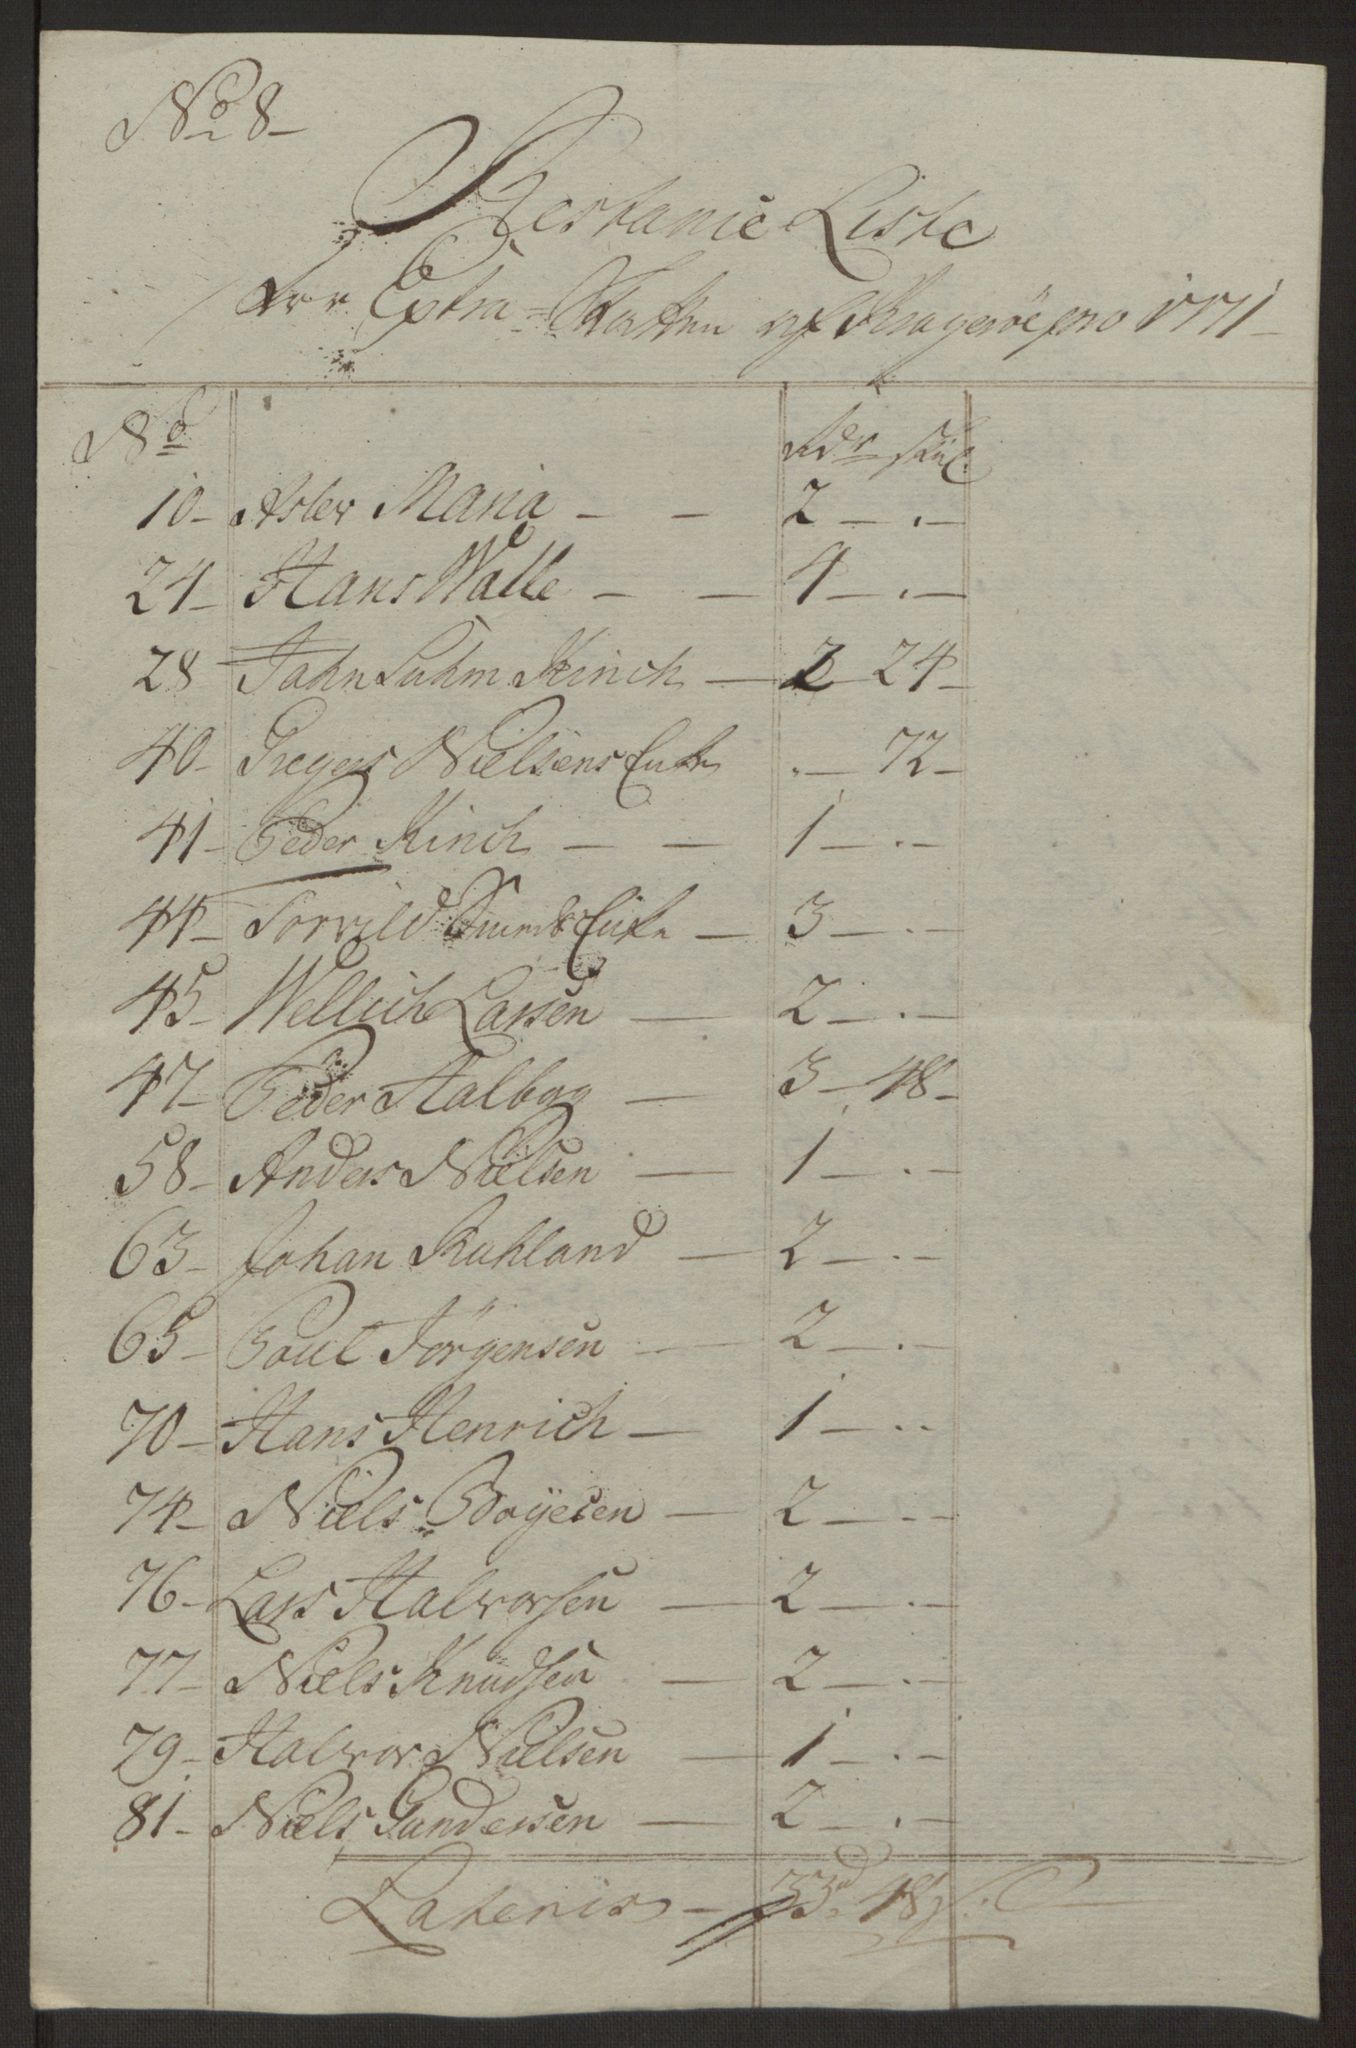 No 8
Restance Liste
for Extra-Skatten af Kragerøe pro 1771
No Rdr Skil.
10 Asler Maria 2 .
24 Hans Walle 4 .
28 Jahn Suhm Kinch 2 24
40 Gregers Nielsens Enke . 72
41 Peder Kinch 1 .
44 Torvild Enke 3 .
45 Wellich Larsen 2 .
47 Peder Aalborg 3 48
58 Anders Nielsen 1 .
63 Johan Kuhland 2 .
65 Poul Jörgensen 2 .
70 Hans Henrich 1 .
74 Niels Boyesen 2 .
76 Lars Halvorsen 2 .
77 Niels Knudsen 2 .
79 Halvor Nielsen 1 .
81 Niels Gundersen 2 .
Lateris 33 48